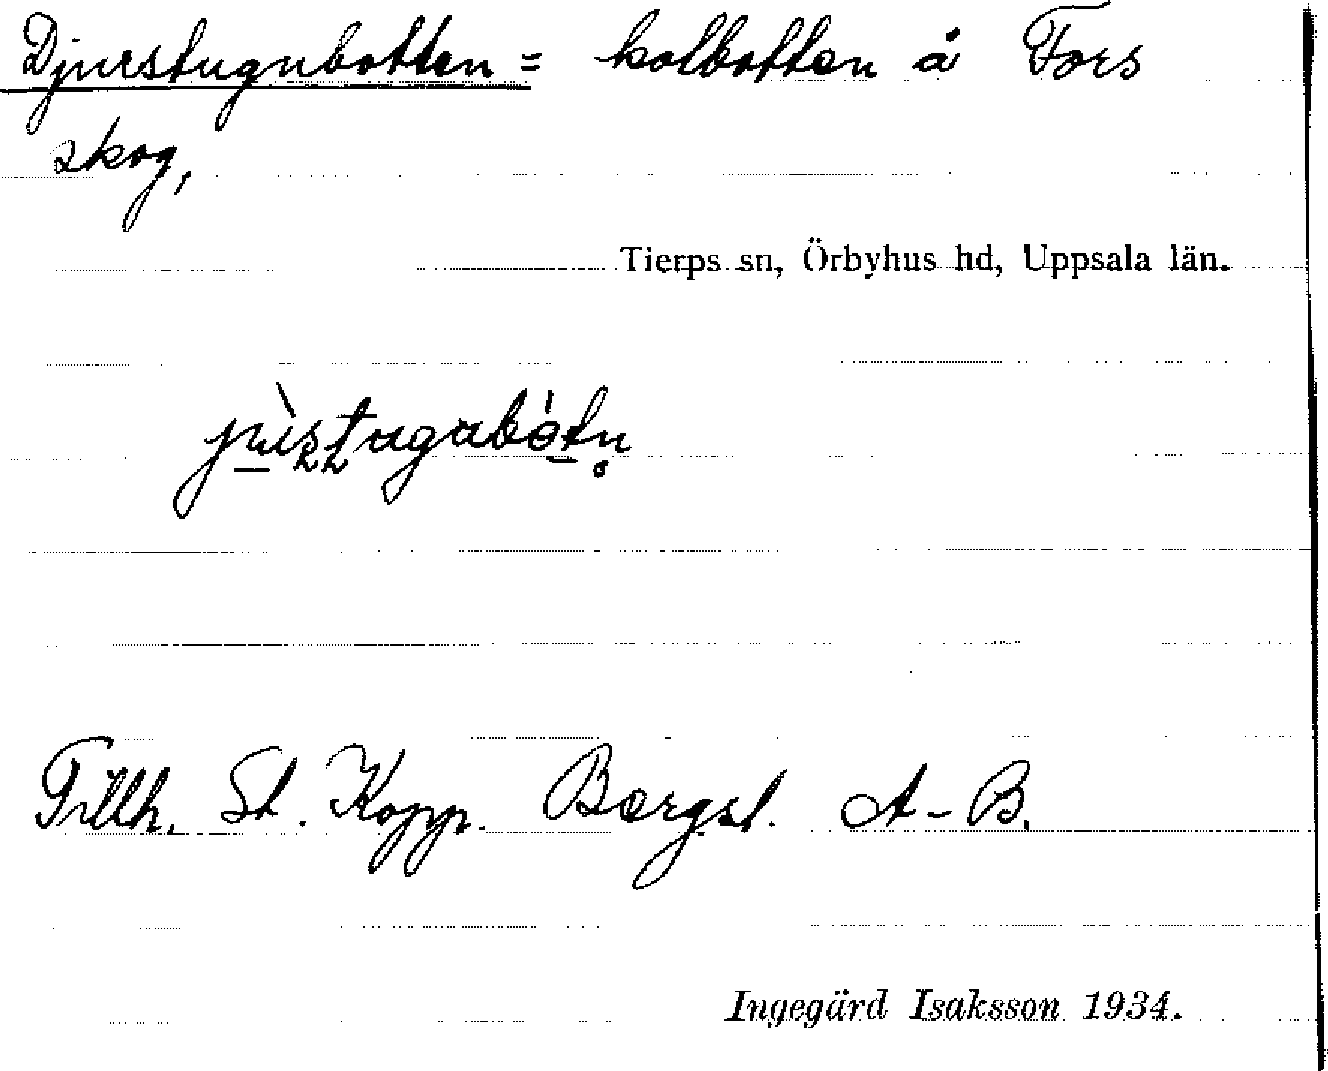 Djurstugubotten = kolbotten å Fors
skog,
Tierps sn, Örbyhus hd, Uppsala län.
Tillh. St. Kopp. Bergsl. A-B.
Ingegärd Isaksson 1934.